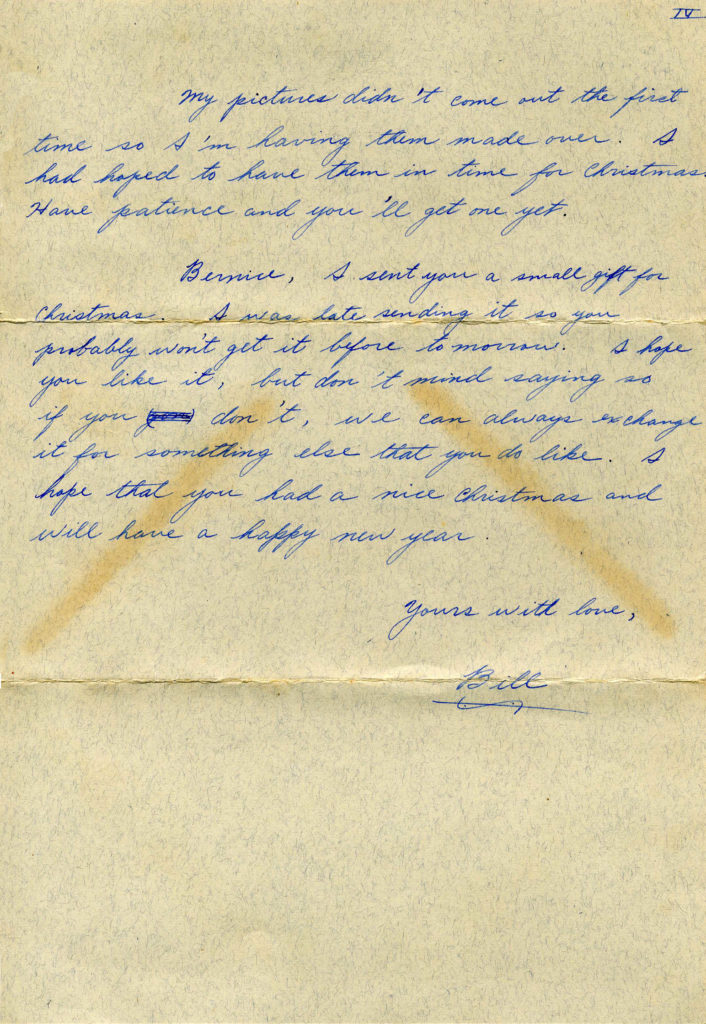 IV
My pictures didn't come out the first
time so I'm having them made over. I
had hoped to have them in time for Christmas.
Have patience and you'll get one yet.
Bernice, I sent you a small gift for
Christmas. I was late sending it so you
probably won't get it before tomorrow. I hope
you like it, but don't mind saying so
if you don't, we can always exchange
it for something else that you do like. I
hope that you had a nice Christmas and
will have a happy new year.
Yours with love,
Bill